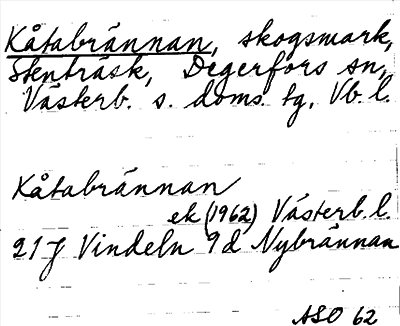 Kåtabrännan, skogsmark,
Stenträsk, Degerfors sn,
Västerb. s. doms. tg, Vb. l.
Kåtabrännan
ek (1962) Västerb. l.
21J Vindeln 9d Nybrännan
ASO 62